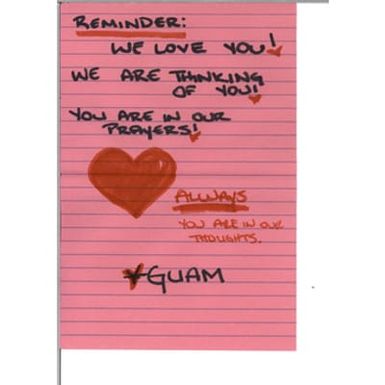 REMINDER:
WE LOVE YOU!
WE ARE THINKING
OF YOU!
YOU ARE IN OUR
PRAYERS!
ALWAYS
YOU ARE IN OUR
THOUGHTS.
GUAM